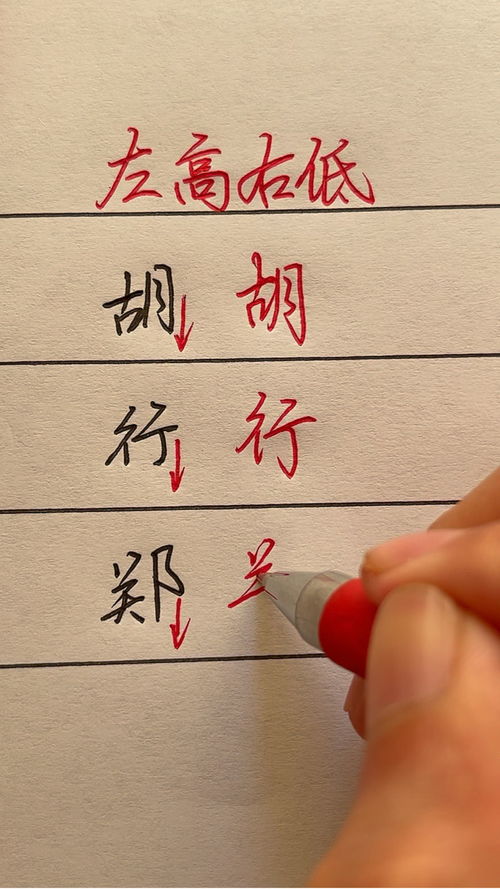 左高右低
胡 胡
行 行
郑